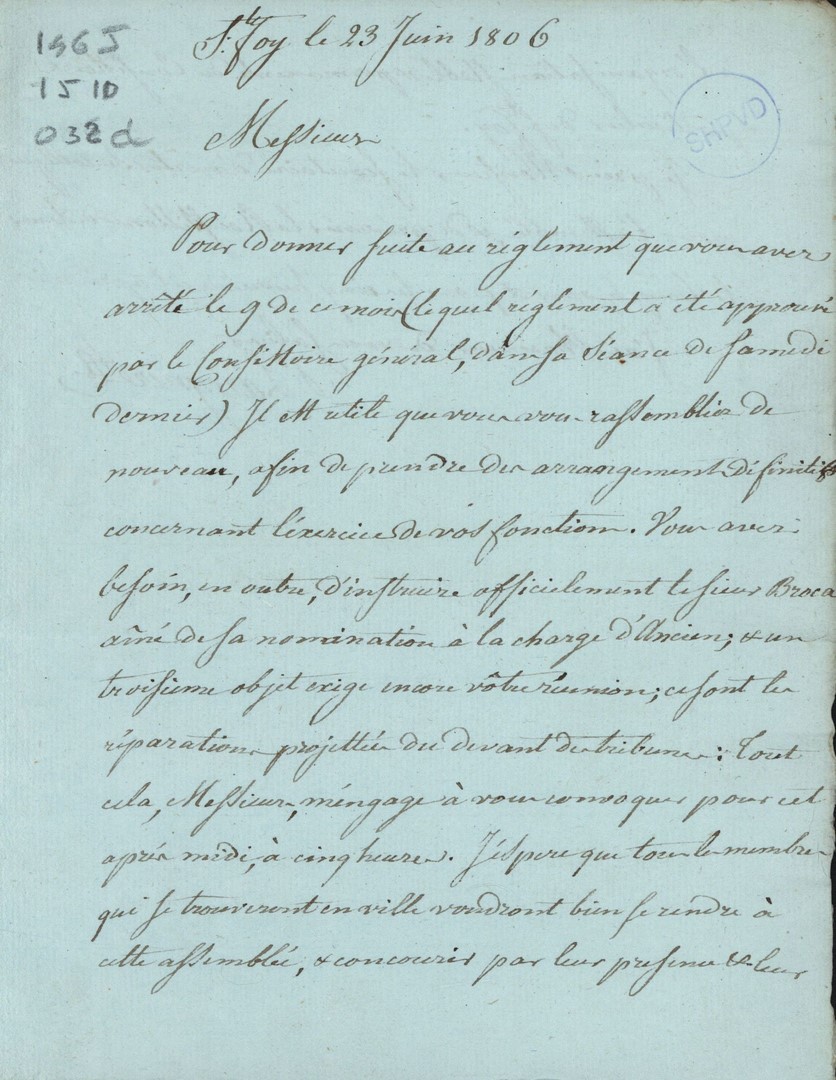 1465
1510
032d
SHPVD
Ste. Foy le 23 Juin 1806
Messieurs
Pour donner suite au réglement que vous avez
arrêté le 9 de ce mois (lequel réglement a été approuvé
par le Consistoire général, dans sa Séance de Samedi
dernier) Il est utile que vous vous rassembliez de
nouveau, afin de prendre des arrangements définitifs
concernant l'éxercice de vos fonctions. Vous avez
besoin, en outre, d'instruire officielement le sieur Broca
aîné de sa nomination à la charge d'Ancien; & un
troisieme objet exige encore vôtre réunion; ce sont les
réparations projettées du devant des tribunes: Tout
cela, Messieurs, m'éngage à vous convoquer pour cet
après midi, à cinq heures. J'éspere que tous les membres
qui se trouveront en ville voudront bien se rendre à
cette assemblée, & concourir par leur presence & leurs